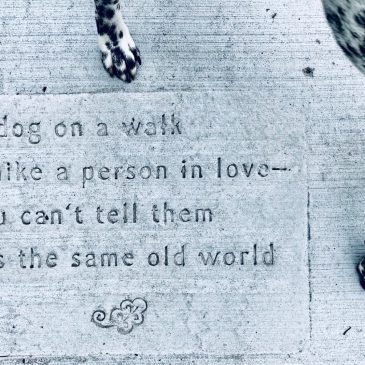 dog on a walk
like a person in love—
u can't tell them
s the same old world